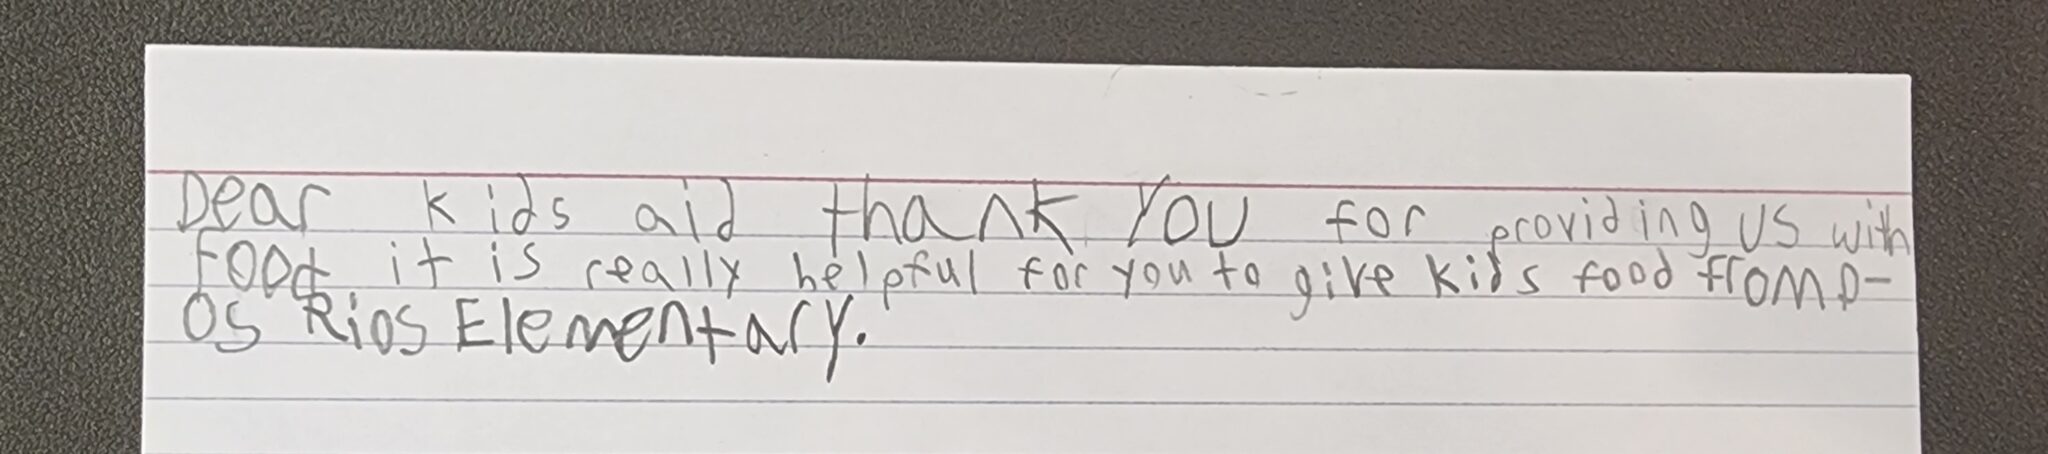 Dear kids aid thank YOU for providing US with
Food it is really helpful for you to give kids food from D-
OS Rios Elementary.